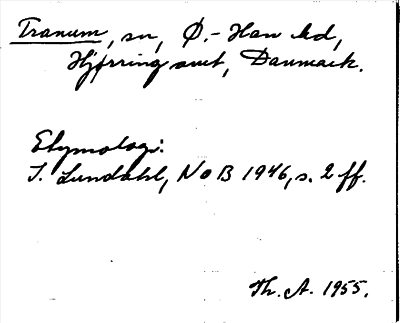 Tranum, sn, Ø.- Han hd,
Hjørring amt, Danmark.
Etymologi:
I. Lundahl, NoB 1946, s. 2 ff.
Th. A. 1955.